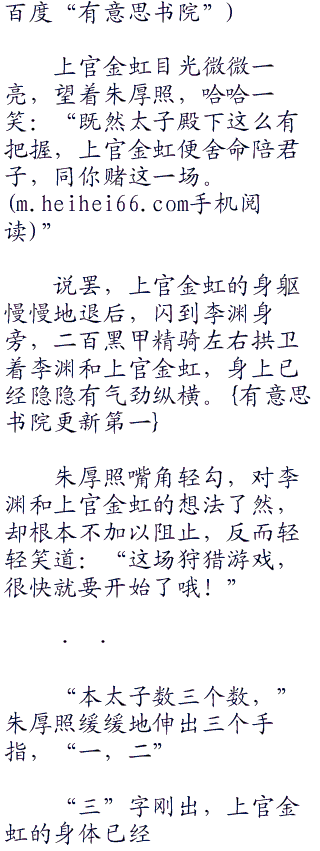 百度“有意思书院”)
上官金虹目光微微一
亮，望着朱厚照，哈哈一
笑：“既然太子殿下这么有
把握，上官金虹便舍命陪君
子，同你赌这一场。
(m.heihei66.com手机阅
读)”
说罢，上官金虹的身躯
慢慢地退后，闪到李渊身
旁，二百黑甲精骑左右拱卫
着李渊和上官金虹，身上已
经隐隐有气劲纵横。{有意思
书院更新第一}
朱厚照嘴角轻勾，对李
渊和上官金虹的想法了然，
却根本不加以阻止，反而轻
轻笑道：“这场狩猎游戏，
很快就要开始了哦！”
. .
“本太子数三个数，”
朱厚照缓缓地伸出三个手
指，“一，二”
“三”字刚出，上官金
虹的身体已经